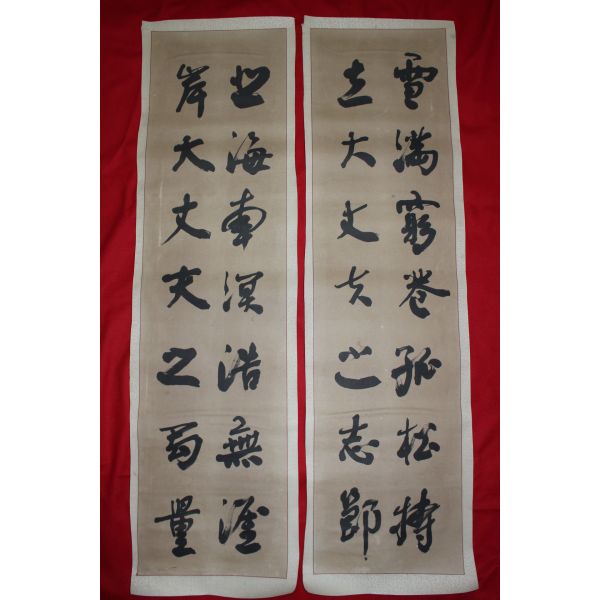 雪滿窮巷孤松特
立大丈夫之志節
北海南溟浩無涯
岸大丈夫之局量